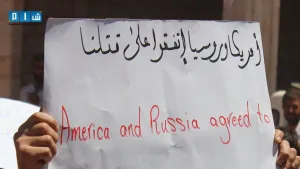 شام
أمريكا وروسيا إتفقوا على قتلنا
America and Russia agreed to